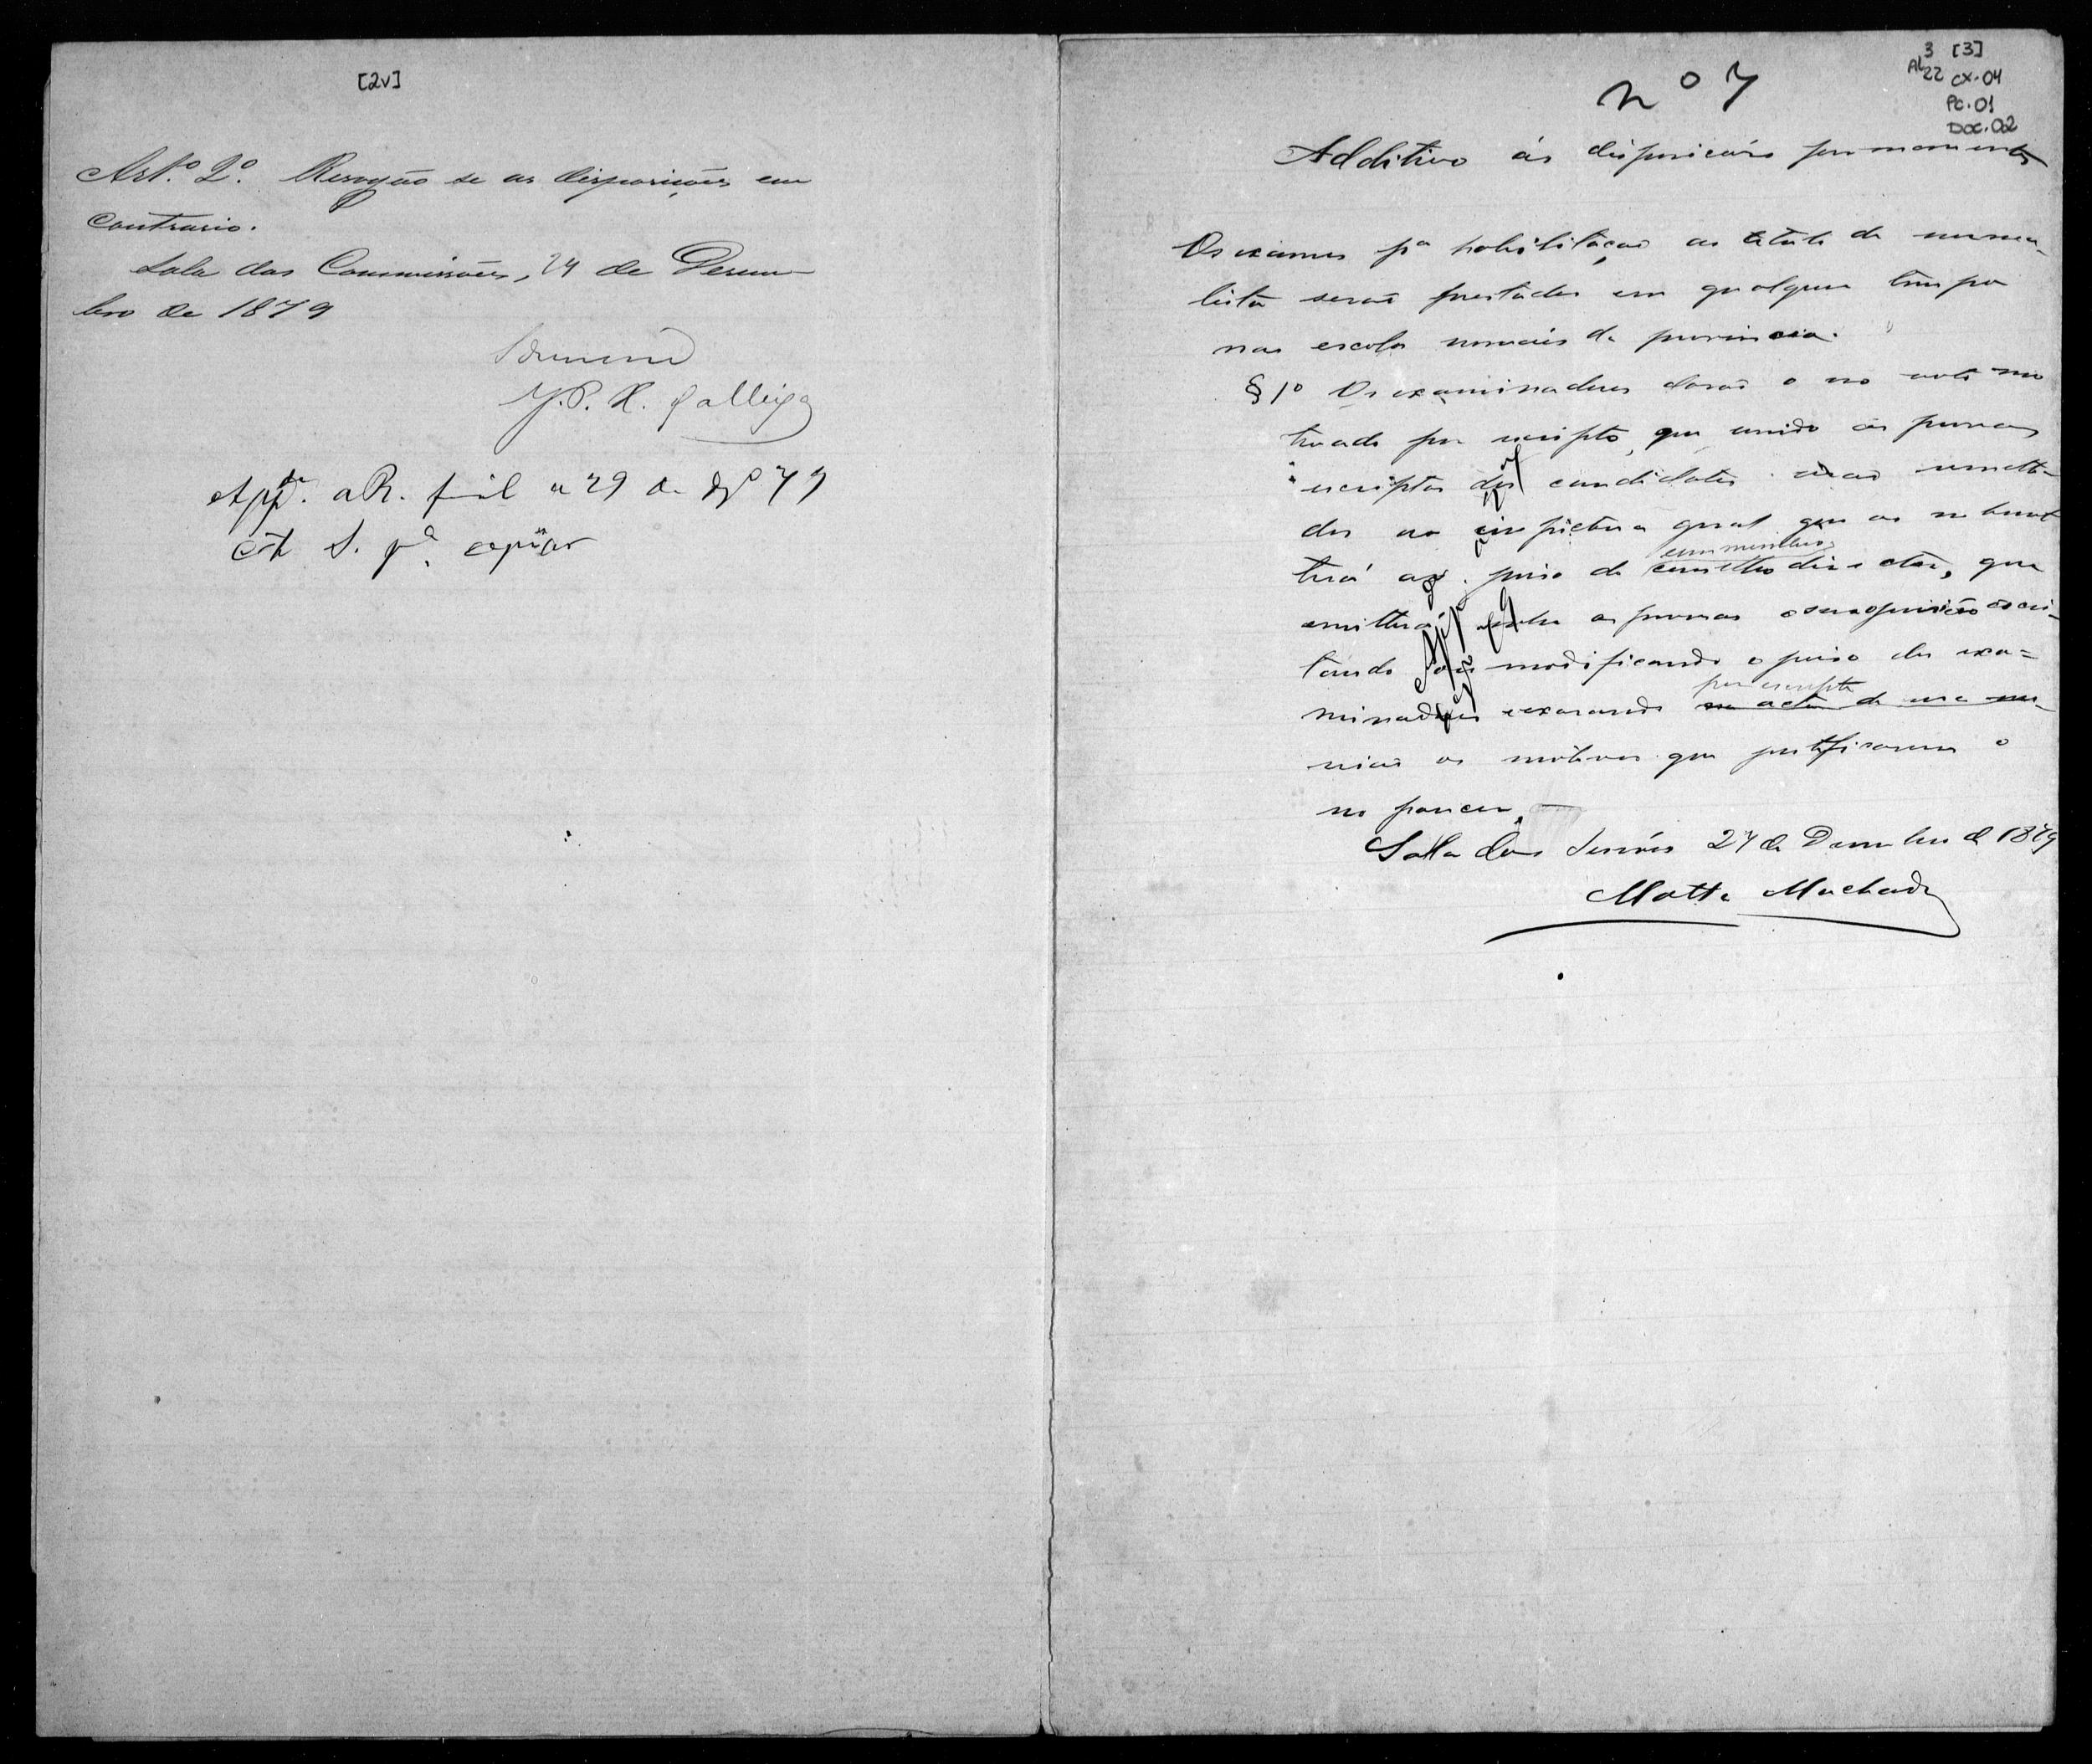 [2v]
Art.º 2º. Revogão se as disposições em
contrario.
Sala das Commissões, 24 de Dezem-
bro de 1879
J. P. X. da Veiga
Appda. a R. final a 29 de Dzº 79
S. pª copiar
3 [3]
AL 22 CX.04
PC.01
DOC.02
nº 7
Additivo ás disposições permanentes
Os exames pª habilitação ao titulo de norma-
lista serão prestados em qualquer tempo
nas escolas normáes da provincia.
§ 1º Os examinadores darão o seo voto mo
tivado por escripto, que unido ás provas
escriptas dos candidatos serão remetti-
dos ao inspector geral que os submet
terá ao juiso de commissão
conselho director, que
emittirá sobre as provas
tando ou modificando o juiso dos exa=
minadores e exarando por escripto
na acta de sua reu
nião os motivos que justificarem o
seo parecer.
Salla das Sessões 27 de Dezembro de 1879
Motta Machado